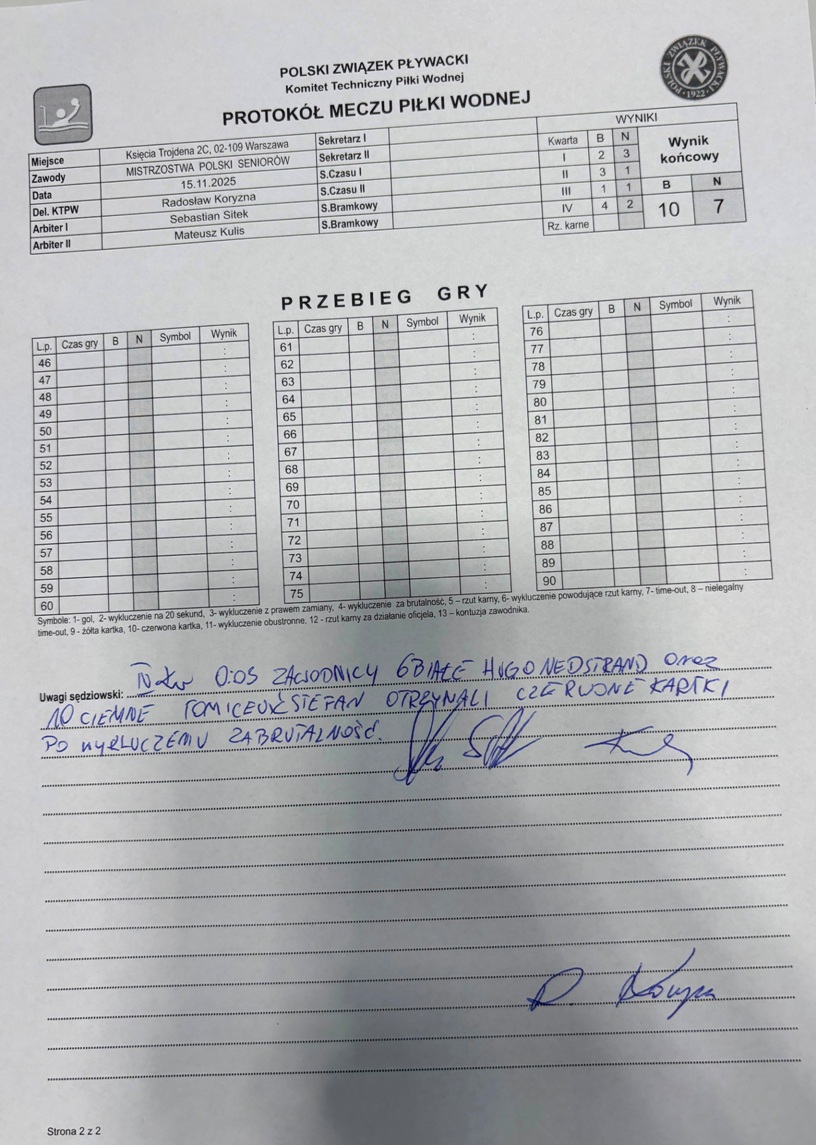 POLSKI ZWIĄZEK PŁYWACKI
Komitet Techniczny Piłki Wodnej
PROTOKÓŁ MECZU PIŁKI WODNEJ
POLSKI ZWIĄZEK PŁYWACKI
1922
Miejsce Księcia Trojdena 2C, 02-109 Warszawa Sekretarz I
Zawody MISTRZOSTWA POLSKI SENIORÓW Sekretarz II
Data 15.11.2025 S.Czasu I
Del. KTPW Radosław Koryzna S.Czasu II
Arbiter I Sebastian Sitek S.Bramkowy
Arbiter II Mateusz Kulis S.Bramkowy
WYNIKI
Kwarta B N Wynik końcowy
I 2 3
II 3 1
III 1 1 B N
IV 4 2 10 7
Rz. karne
PRZEBIEG GRY
L.p. Czas gry B N Symbol Wynik
46 :
47 :
48 :
49 :
50 :
51 :
52 :
53 :
54 :
55 :
56 :
57 :
58 :
59 :
60 :
L.p. Czas gry B N Symbol Wynik
61 :
62 :
63 :
64 :
65 :
66 :
67 :
68 :
69 :
70 :
71 :
72 :
73 :
74 :
75 :
L.p. Czas gry B N Symbol Wynik
76 :
77 :
78 :
79 :
80 :
81 :
82 :
83 :
84 :
85 :
86 :
87 :
88 :
89 :
90 :
Symbole: 1- gol, 2- wykluczenie na 20 sekund, 3- wykluczenie z prawem zamiany, 4- wykluczenie za brutalność, 5 – rzut karny, 6- wykluczenie powodujące rzut karny, 7- time-out, 8 – nielegalny
time-out, 9 - żółta kartka, 10- czerwona kartka, 11- wykluczenie obustronne, 12 - rzut karny za działanie oficjela, 13 – kontuzja zawodnika.
Uwagi sędziowski: IV kw 0:05 ZAWODNICY 6 BIAŁE HUGO NEDSTRAND oraz
10 CIEMNE STEFAN OTRZYMALI CZERWONE KARTKI
PO WYKLUCZEMU ZA BRUTALNOŚĆ.
Strona 2 z 2